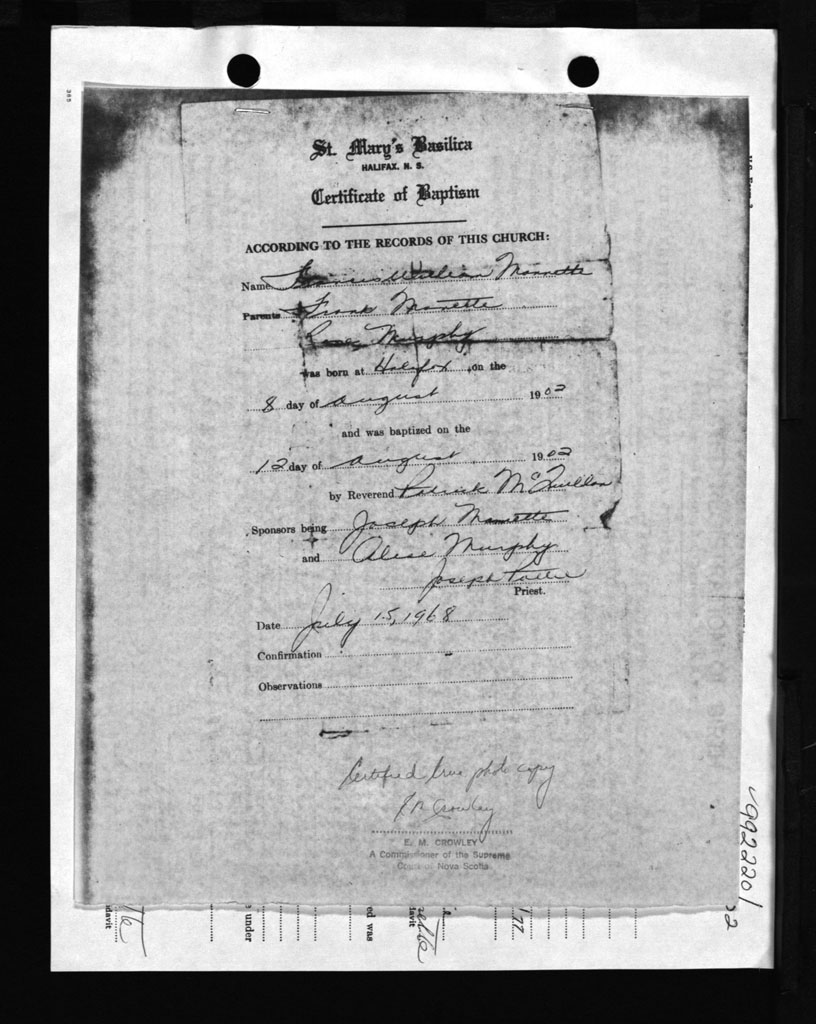 St. Mary's Basilica
HALIFAX, N. S.
Certificate of Baptism
ACCORDING TO THE RECORDS OF THIS CHURCH:
Name Francis William Mannette
Parents Frank Manette
Rose Murphy
was born at Halifax, on the
8 day of August 1902
and was baptized on the
12 day of August 1902
by Reverend Patrick McQuillan
Sponsors being Joseph Mannette
and Alice Murphy
Joseph
Priest.
Date July 15, 1968
Confirmation
Observations
Certified true photo copy
Crowley
E. M. CROWLEY
A Commissioner of the Supreme
Court of Nova Scotia
9922201
under
ed was
davit
177